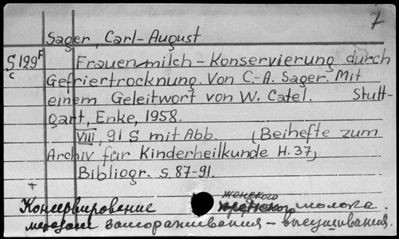 7
Sager, Carl-August
S 199F Frauenmilch-Konservierung durch
c Gefriertrocknung. Von C.-A. Sager. Mit
einem Geleitwort von W. Catel. Stutt-
gart, Enke, 1958.
VIII, 91 S mit Abb. (Beihefte zum
Archiv für Kinderheilkunde H. 37)
Bibliogr. S. 87-91.
+
женского
Консервирование молока
методом замораживания - высушивания.